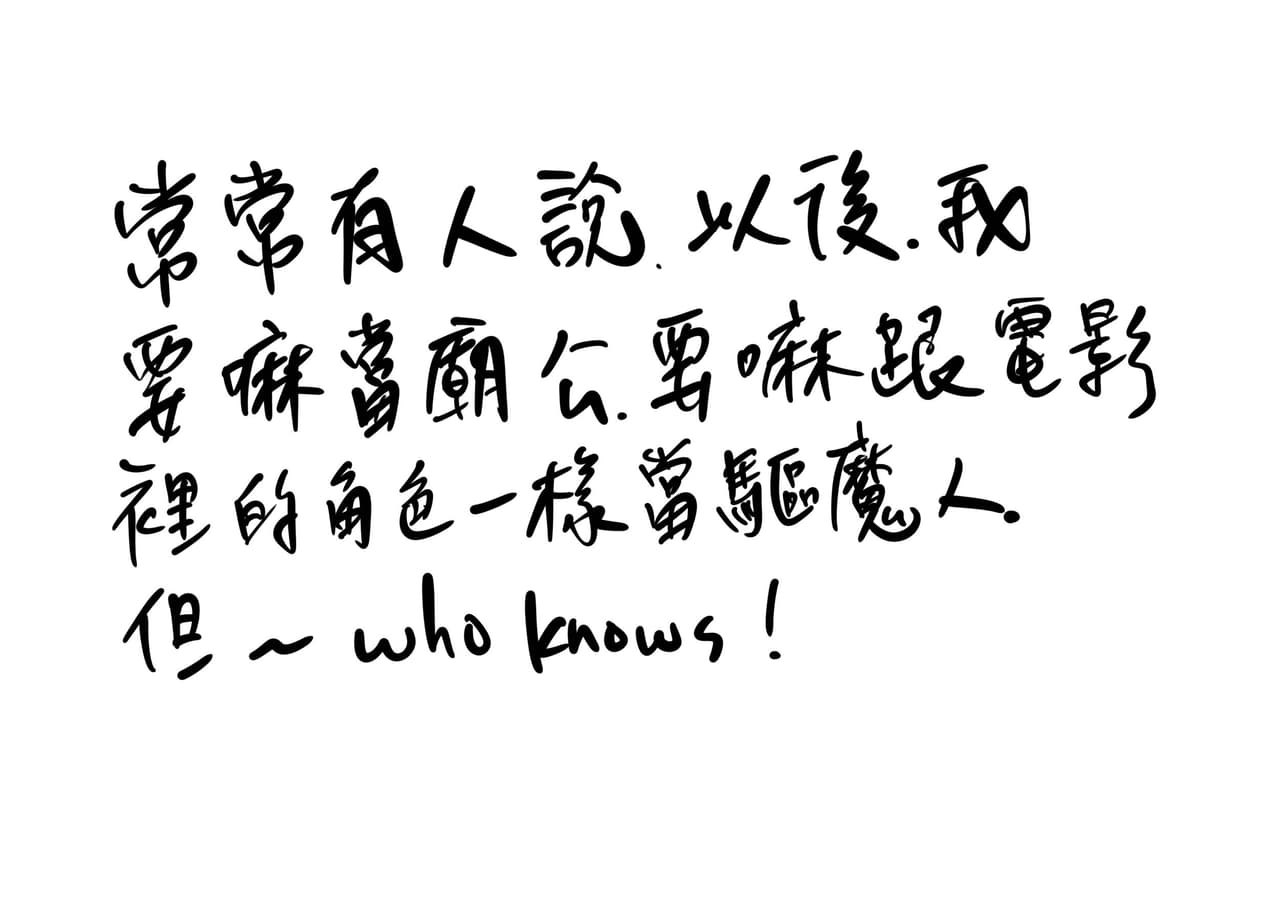 常常有人說.以後.我
要嘛當廟公.要嘛跟電影
裡的角色一樣當驅魔人.
但~who knows!